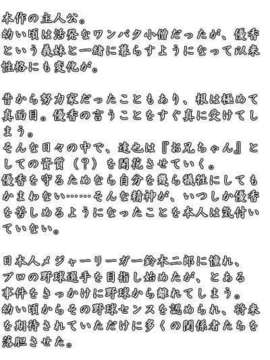 本作の主人公。
幼い頃は活発なワンパク小僧だったが、優香
という義妹と一緒に暮らすようになって以来
性格にも変化が。
昔から努力家だったこともあり、根は極めて
真面目。優香の言うことをすぐ真に受けてし
まう。
そんな日々の中で、達也は『お兄ちゃん』と
しての資質（？）を開花させていく。
優香を守るためなら自分を幾ら犠牲にしても
かまわない……そんな精神が、いつしか優香
を苦しめるようになったことを本人は気付い
ていない。
日本人メジャーリーガー鈴木二郎に憧れ、
プロの野球選手を目指し始めたが、とある
事件をきっかけに野球から離れてしまう。
幼い頃からその野球センスを認められ、将来
を期待されていただけに多くの関係者たちを
落胆させた。